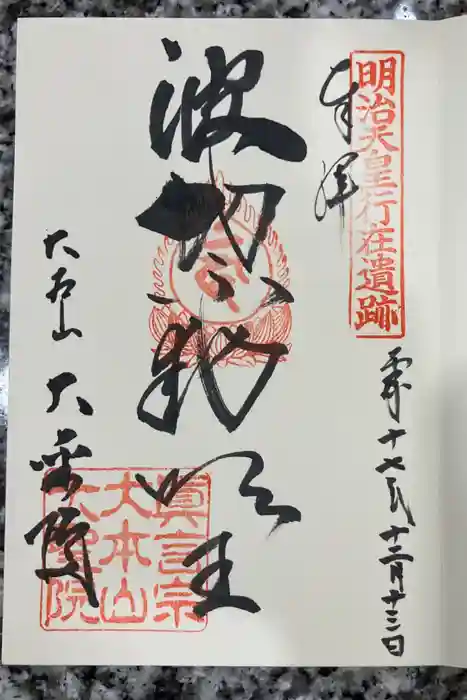 明治天皇行在遺跡
奉拝
平成十七年十二月十三日
波切不動明王
大本山 大聖院
眞言宗
大本山
大聖院